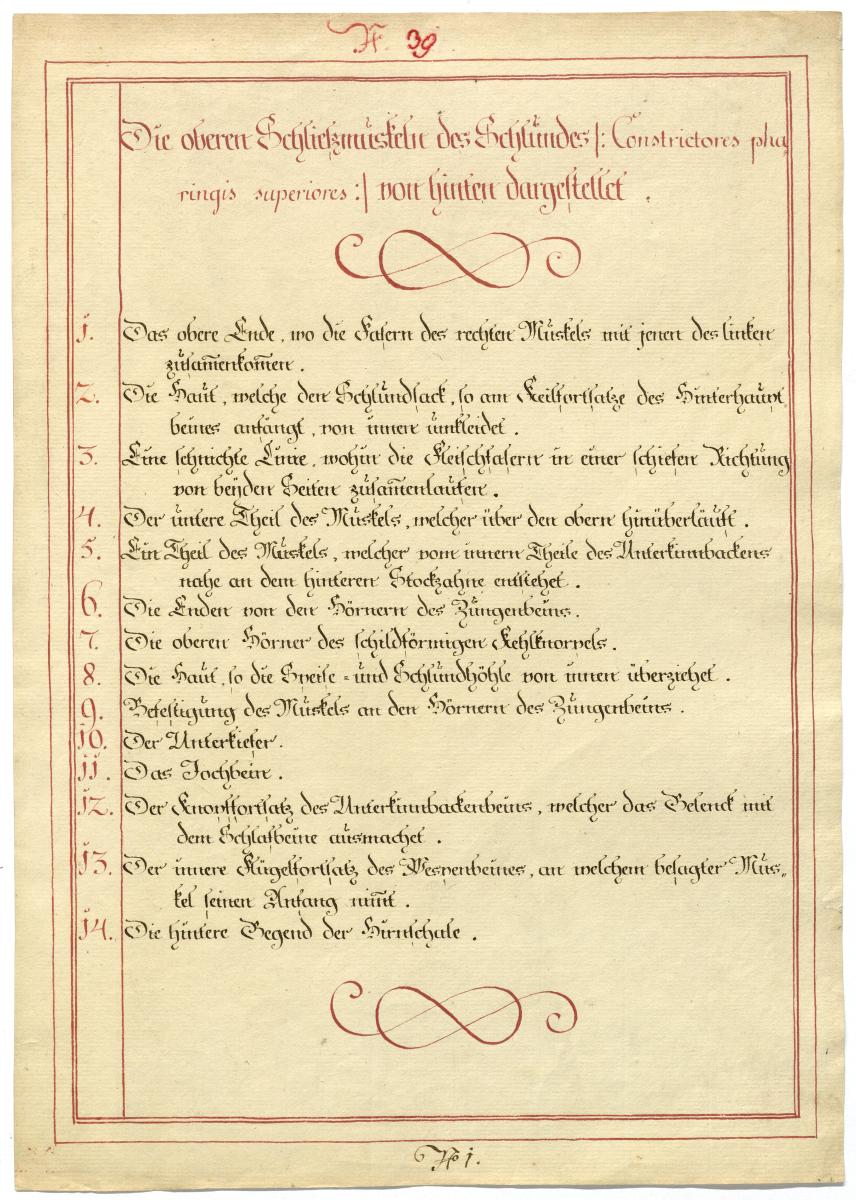 N. 39
Die oberen Schließmuskeln des Schlundes /: Constrictores pha„
ringis superiores :/ von hinten dargestellet .
1. Das obere Ende, wo die Fasern des rechten Muskels mit jenen des linken
zusam̅enkom̅en .
2. Die Haut, welche den Schlundsack, so am Keilfortsatze des Hinterhaupt„
beines anfängt, von innen umkleidet .
3. Eine sehnichte Linie, wohin die Fleischfasern in einer schiefen Richtung
von beÿden Seiten zusam̅enlaufen .
4. Der untere Theil des Muskels, welcher über den obern hinüberläuft .
5. Ein Theil des Muskels, welcher vom innern Theile des Unterkinnbackens
nahe an dem hinteren Stockzahne entstehet .
6. Die Enden von den Hörnern des Zungenbeins .
7. Die oberen Hörner des schildförmigen Kehlknorpels .
8. Die Haut, so die Speise = und Schlundhöhle von innen überziehet .
9. Befestigung des Muskels an den Hörnern des Zungenbeins .
10. Der Unterkiefer .
11. Das Jochbein .
12. Der Knopffortsatz des Unterkinnbackenbeins, welcher das Gelenck mit
dem Schlafbeine ausmachet .
13. Der innere Flügelfortsatz des Wespenbeines, an welchem besagter Mus„
kel seinen Anfang nim̅t .
14. Die hintere Gegend der Hirnschale .
No 1.